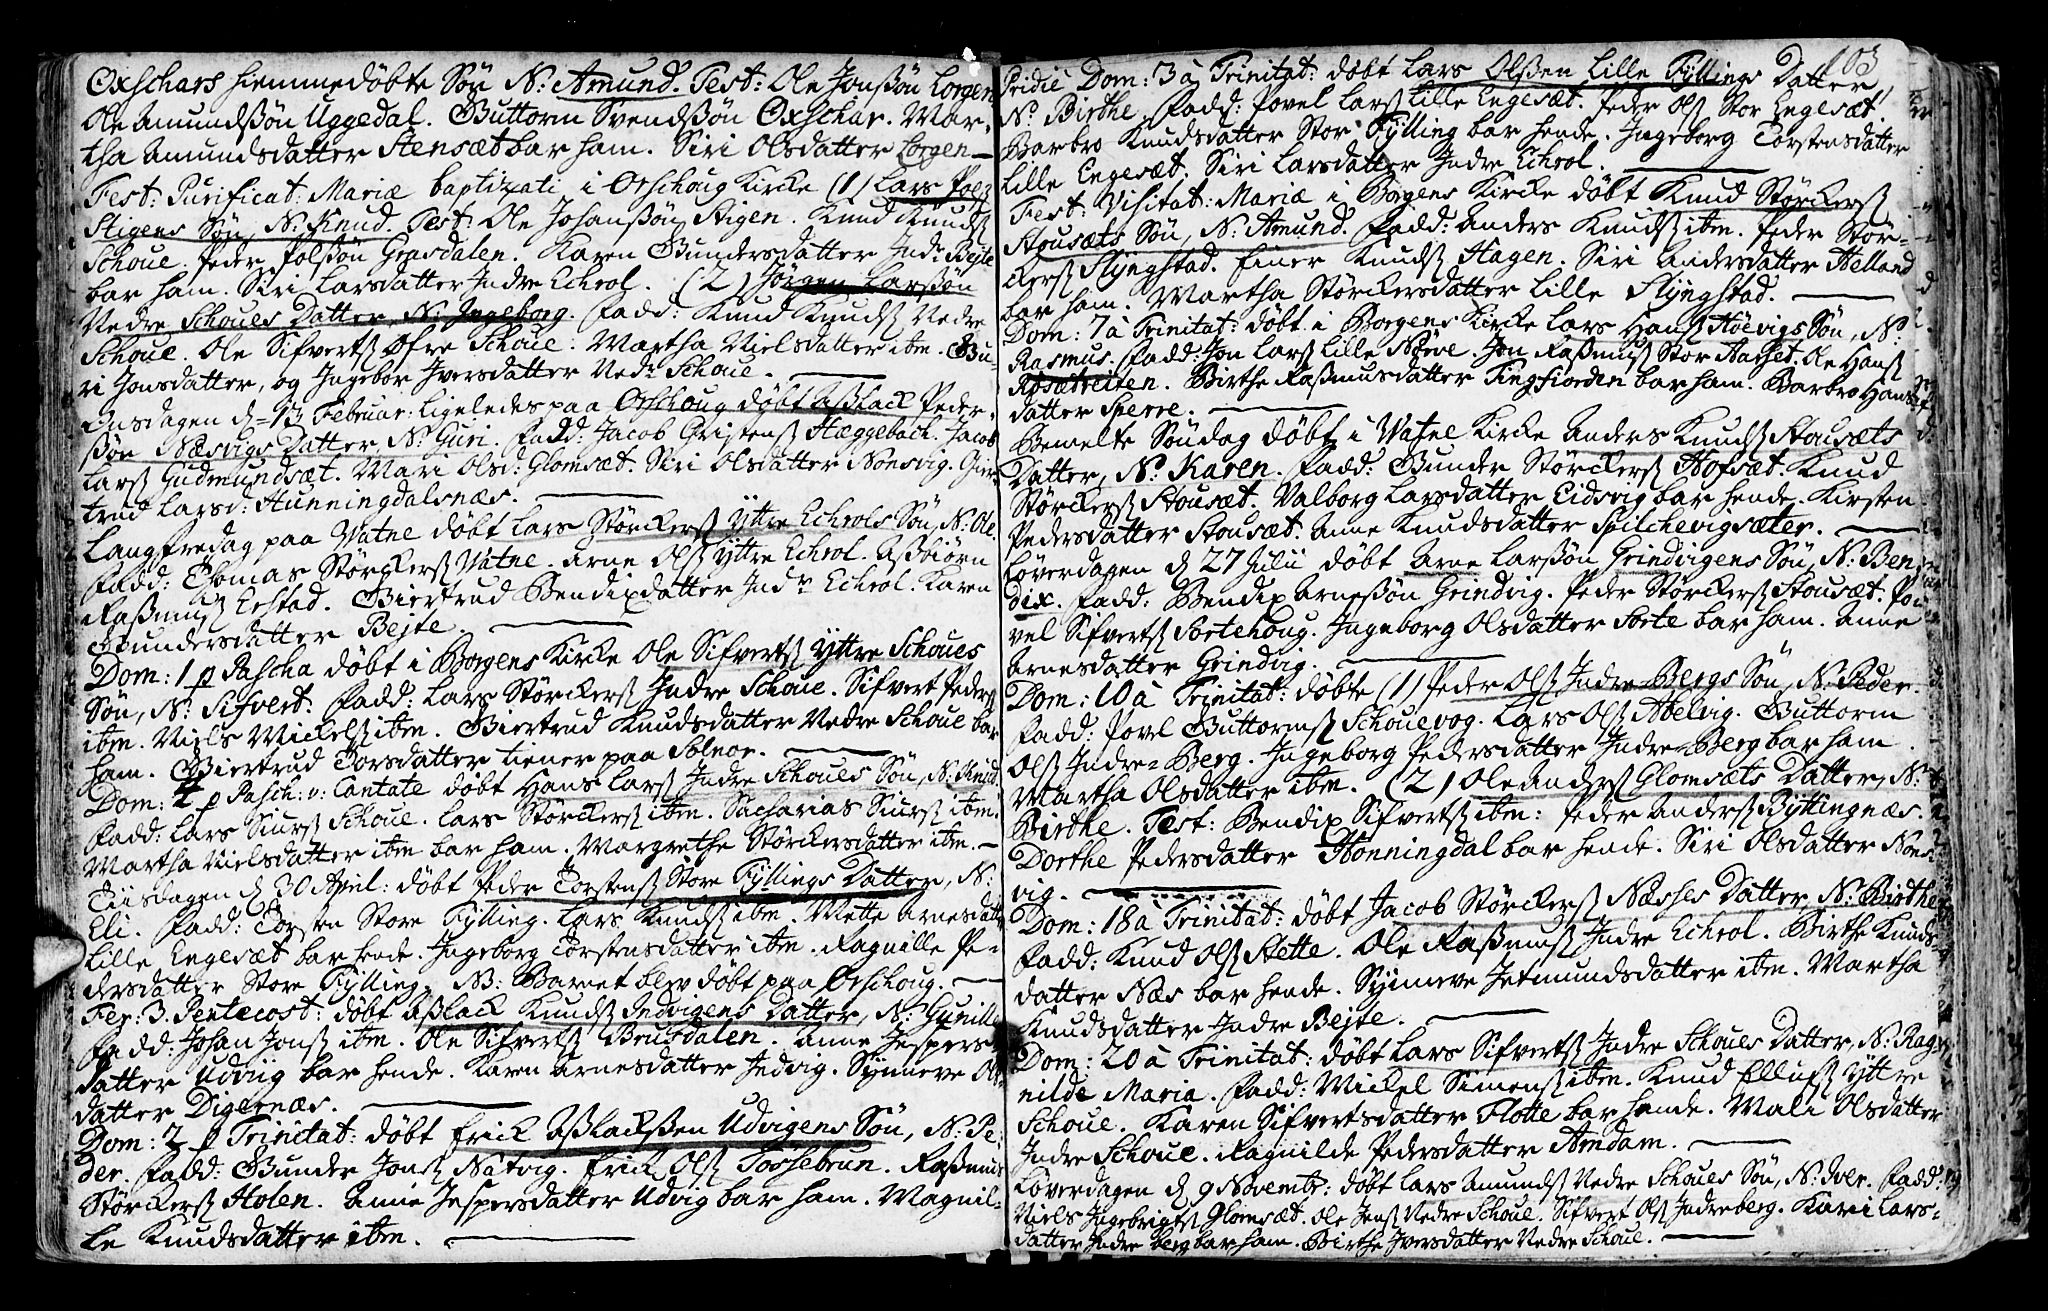 Oxschars hiemmedøbte Søn N: Amund. Test: Ole Jonssøn Lorgen
Ole Amundssøn Uggedal. Guttorm Svendssøn Oxschar. Mar-
tha Amundsdatter Stensæt bar ham. Siri Olsdatter Lorgen
Fest: Purificat: Mariæ baptizati i Orschoug Kirke (1) Lars Pols
Stigens Søn, N: Knud. Test: Ole Johanssøn Stigen. Knud Knuds
Schoue. Peder Polssøn Grasdalen. Karen Gundersdatter Indr Bejte
bar ham. Siri Larsdatter Indre Echrol. (2) Jørgen Larssøn
Nedre Schoues Datter, N: Ingeborg. Fadd: Knud Knuds Nedre
Schoue. Ole Sifverts Øfre Schoue. Martha Nielsdatter ibm. Gu-
ri Jonsdatter, og Ingebor Iversdatter Nedr Schoue.
Onsdagen d. 13 Februar: ligeledes paa Orschoug døbt Asslack Peder-
ssøn Næsvigs Datter, N: Guri. Fadd: Jacob Christens Hæggebach. Jacob
Lars Gudmundsæt. Mari Olsd: Glomsæt. Siri Olsdatter Nonsvig. Gier-
trud Larsd: Hunningdalsnæs.
Langfredag paa Vatne døbt Lars Størckers Yttre Echrols Søn, N: Ole
Fadd: Tomas Størckers Vatne. Arne Ols Yttre Echrol. Assbiørn
Rassmus Erstad. Giertrud Bendixdatter Indr Echrol. Karen
Gundersdatter Bejte.
Dom: 1 p Pascha døbt i Borgens Kirke Ole Sifverts Yttre Schoues
Søn, N: Sifvert. Fadd: Lars Størckers Indre Schoue. Sifvert Peders
ibm. Niels Mickels ibm. Giertrud Knudsdatter Nedre Schoue bar
ham. Giertrud Torsdatter tiener paa Solnor.
Dom: 4 p Pasch: v: Cantate døbt Hans Lars Indre Schoues Søn, N: Knud
Fadd: Lars Siurs Schoue. Lars Størckers ibm. Sacharias Siurs ibm.
Martha Nielsdatter ibm bar ham. Margrethe Størckersdatter ibm.
Tiisdagen d 30 April: døbt Peder Torstens Store Fyllings Datter, N:
Eli. Fadd: Torsten Store Fylling. Lars Knuds ibm. Mette Arnesdatt
Lille Engesæt bar hende. Ingeborg Torstensdatter ibm. Ragnille Pe-
dersdatter Store Fylling. NB: Barnet blev døbt paa Orschoug.
Fer: 3. Pentecost: døbt Asslack Knuds Indvigens Datter, N: Gunill
Fadd: Johan Jons ibm. Ole Sifverts Brusdalen. Anne Jespers
datter Udvig bar hende. Karen Arnesdatter Indvig. Synneve Ols
datter Digernæs.
Dom: 2 p Trinitat: døbt Erick Asslackssen Udvigens Søn, N: Pe-
der. Fadd: Gunder Jons Natvig. Erick Ols Tossebrun. Rassmus
Størckers Holen. Anne Jespersdatter Udvig bar ham. Magnil-
le Knudsdatter ibm.
103
Pridie Dom: 3 à Trinitat: døbt Lars Olssen Lille Fyllings Datter
N: Birthe. Fadd: Povel Lars Lille Engesæt. Peder Ols Stor Engesæt
Barbro Knudsdatter Stor Fylling bar hende. Ingeborg Torstensdatter
Lille Engesæt. Siri Larsdatter Indre Echrol.
Fest: Visitat: Mariæ i Borgens Kirke døbt Knud Størckers
Stousæts Søn, N: Amund. Fadd: Anders Knuds ibm. Peder Stør-
ckers Slyngstad. Einer Knuds Hagen. Siri Andersdatter Helland
bar ham. Martha Størckersdatter Lille Slyngstad.
Dom: 7 à Trinitat: døbt i Borgens Kirke Lars Hans Høevigs Søn, N:
Rasmus. Fadd: Jon Lars Lille Nørve. Jon Rassmus Stor Aarset. Ole Hans
Absætreiten. Birthe Rassmusdatter Tingfiorden bar ham. Barbro Hans-
datter Sperre.
Bemelte Søndag døbt i Vatne Kirke Anders Knuds Stousæts
Datter, N: Karen. Fadd: Gunder Størckers Hofsæt. Knud
Størckers Stousæt. Valborg Larsdatter Eidsvig bar hende. Kirsten
Pedersdatter Stousæt. Anne Knudsdatter Spilchevigsæter.
Løverdagen d 27 Julii døbt Arne Larssøn Grindvigens Søn, N: Ben-
dix. Fadd: Bendix Arnessøn Grindvig. Peder Størckers Stousæt. Po-
vel Sifverts Sortehoug. Ingeborg Olsdatter Sorte bar ham. Anne
Arnesdatter Grindvig.
Dom: 10 à Trinitat: døbte (1) Peder Ols Indre Bergs Søn, N: Peder.
Fadd: Povel Guttorms Schouevog. Lars Ols Abelvig. Guttorm
Ols Indre-Berg. Ingeborg Pedersdatter Indre-Berg bar ham.
Martha Olsdatter ibm. (2) Ole Anders Glomsæts Datter, N:
Birthe. Test: Bendix Sifverts ibm: Peder Anders Byttingnæs.
Dorthe Pedersdatter Honningdal bar hende. Siri Olsdatter Nons-
vig.
Dom: 18 à Trinitat: døbt Jacob Størckers Næsses Datter N: Birthe
Fadd: Knud Ols Stette. Ole Rassmus Indre Echrol. Birthe Knuds-
datter Næs bar hende. Synneve Jetmundsdatter ibm. Martha
Knudsdatter Indre Bejte.
Dom: 20 à Trinitat: døbt Lars Sifverts Indre Schoues Datter, N: Rag-
nilde Maria. Fadd: Mickel Simens ibm. Knud Ellufs Yttre
Schoue. Karen Sifvertsdatter Flotte bar hende. Mali Olsdatter
Indre Schoue. Ragnilde Pedersdatter Amdam.
Løverdagen d 9 Novembr: døbt Lars Amunds Nedre Schoues Søn, N: Iver. Fadd:
Niels Ingebrigts Glomsæt. Ole Jens Nedre Schoue. Sifvert Ols Indreberg. Kari Lars-
datter Indre berg bar ham. Birthe Iversdatter Nedre Schoue.